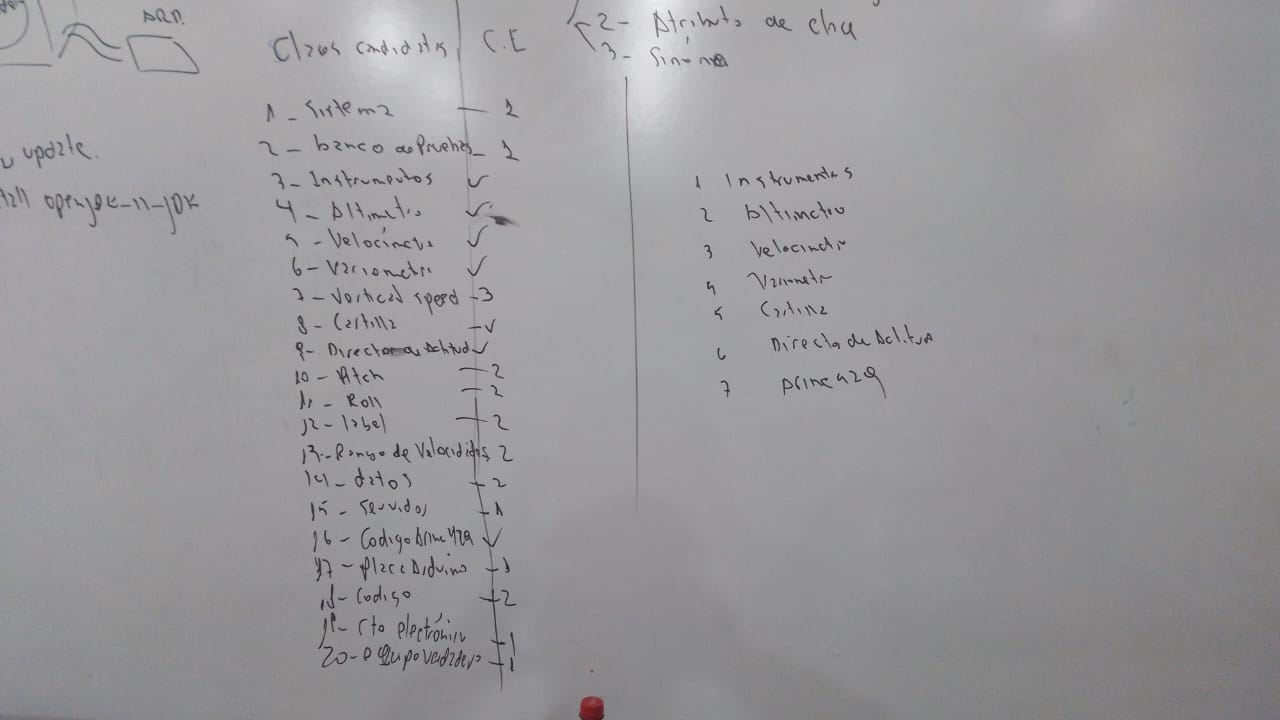 ARP.
update.
openjdk-11-jdk
Clases candidatas C.E
2- Atributo de
3- Sinónimo
1 - Sistema — 1
2 - banco de Pruebas - 1
3 - Instrumentos ✓
4 - Altimetro ✓
5 - Velocímetro ✓
6 - Variometro ✓
7 - Vertical speed - 3
8 - Cartilla - ✓
9 - Director de Actitud ✓
10 - Pitch — 2
11 - Roll — 2
12 - label — 2
13 - Rango de Velocidades 2
14 - datos - 2
15 - Servidor - 1
16 - Codigo Arinc 429 ✓
17 - placa Arduino - 1
18 - Codigo - 2
19 - Cto electrónico - 1
20 - equipo - 1
1 Instrumentos
2 Altimetro
3 Velocimetro
4 Variometro
5 Cartilla
6 Director de Actitud
7 Arinc 429